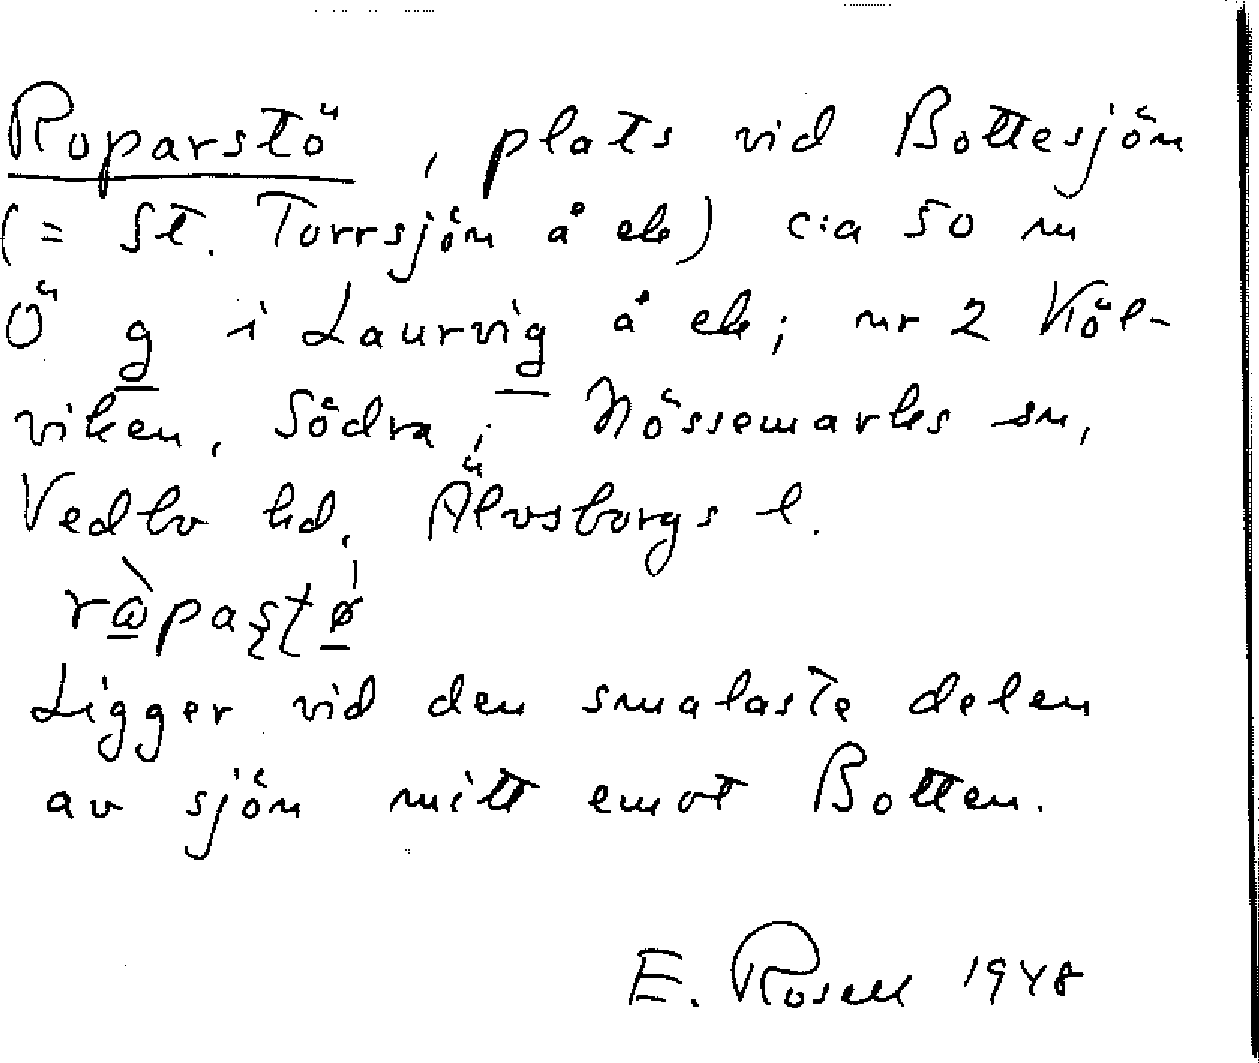 Roparstö, plats vid Bottesjön
(= St. Torrsjön å ek) c:a 50 m
Ö g i Laurvig å ek; nr 2 Köl-
viken, Södra, Nössemarks sn,
Vedbo hd, Älvsborgs l.
Ligger vid den smalaste delen
av sjön mitt emot Botten.
E. Rosell 1948